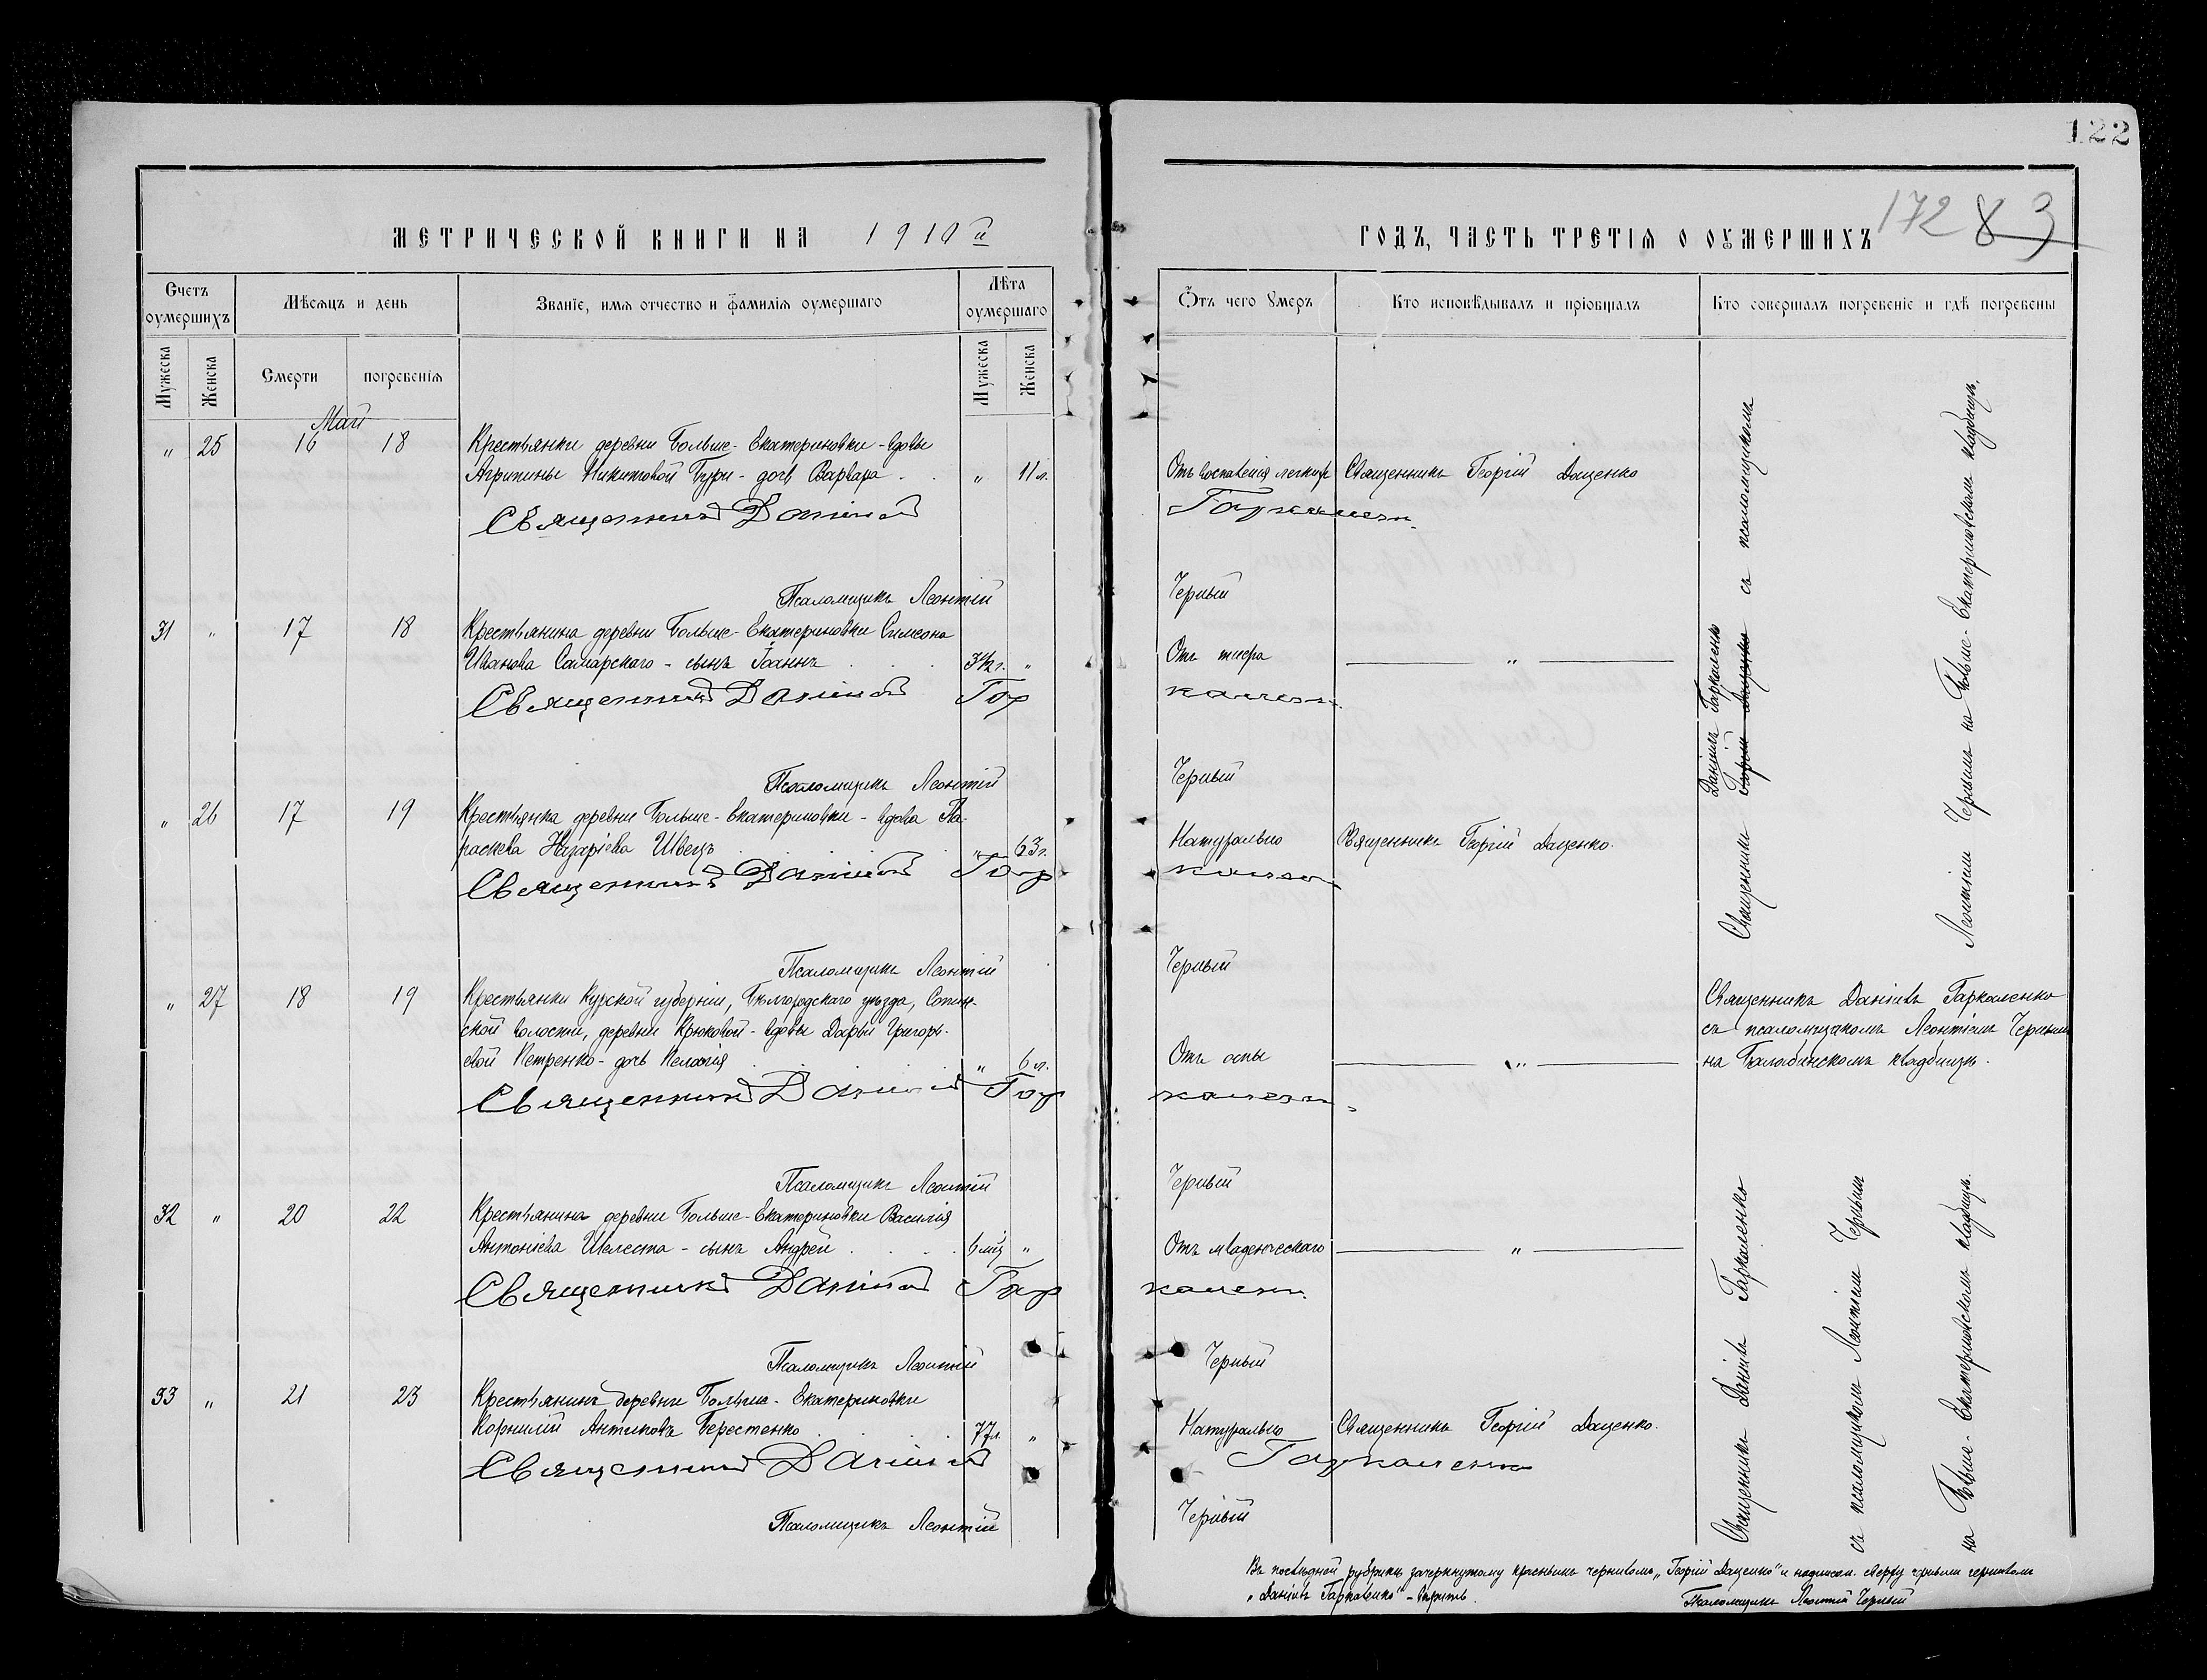 122
172 83
МЕТРИЧЕСКОЙ КНИГИ НА 1910й
ГОДЪ, ЧАСТЬ ТРЕТІѦ О ОУМЕРШИХЪ
Счетъ оумершихъ
Мѣсѧцъ и день
Званіе, имѧ отчество и фамиліѧ оумершаго
Лѣта оумершаго
Ѿтъ чего умеръ
Кто исповѣдывалъ и пріобщалъ
Кто совершалъ погребеніе и гдѣ погребены
Мужеска
Женска
Смерти
погребеніѧ
Мужеска
Женска
Май
" 25 16 18 Крестьянки деревни Больше-Екатериновки - вдовы
Агрипины Никитовой Бури - дочь Варвара . . " 11 л. Отъ воспаленія легкихъ Священникъ Георгій Даценко
Священникъ Даніилъ Гаркаленко
Псаломщикъ Леонтій Черный
31 " 17 18 Крестьянина деревни Больше-Екатериновки Симеона
Иванова Самарскаго - сынъ Іоаннъ . . . 3½ г. " Отъ тифа "
Священникъ Даніилъ Гаркаленко
Псаломщикъ Леонтій Черный
" 26 17 19 Крестьянка деревни Больше-Екатериновки - вдова Па-
раскева Назаріева Швецъ " 63 г. Натурально Священникъ Георгій Даценко.
Священникъ Даніилъ Гаркаленко
Псаломщикъ Леонтій Черный
Священникъ Даніилъ Гаркаленко Георгій Даценко съ псаломщикомъ
Леонтіемъ Чернымъ на Больше-Екатериновскомъ кладбищѣ.
" 27 18 19 Крестьянки Курской губерніи, Бѣлгородскаго уѣзда,
ской волости, деревни Крюковой - вдовы Дарьи Григорь-
евой Петренко - дочь Пелагія " 6 л. Отъ оспы "
Священникъ Даніилъ Гаркаленко
съ псаломщикомъ Леонтіемъ Чернымъ
на Балабинскомъ кладбищѣ.
Священникъ Даніилъ Гаркаленко
Псаломщикъ Леонтій Черный
32 " 20 22 Крестьянина деревни Больше-Екатериновки Василія
Антоніева Шелеста - сынъ Андрей . . . . 6 мѣс " Отъ младенческаго "
Священникъ Даніилъ Гаркаленко
Псаломщикъ Леонтій Черный
33 " 21 23 Крестьянинъ деревни Больше-Екатериновки
Корнилій Антиповъ Берестенко 77 л. " Натурально Священникъ Георгій Даценко.
Священникъ Даніилъ Гаркаленко
Псаломщикъ Леонтій Черный
Священникъ Даніилъ Гаркаленко
съ псаломщикомъ Леонтіемъ Чернымъ
на Больше-Екатериновскомъ кладбищѣ.
Въ послѣдней рубрикѣ зачеркнутому красными чернилами „Георгій Даценко" и надписан. сверху черными чернилами
„Даніилъ Гаркаленко" - вѣрить.
Псаломщикъ Леонтій Черный